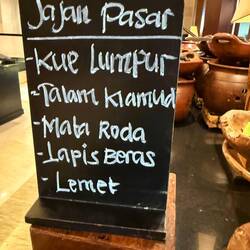 Jajan Pasar
- Kue Lumpur
- Talam Kiamud
- Mata Roda
- Lapis Beras
- Lemet